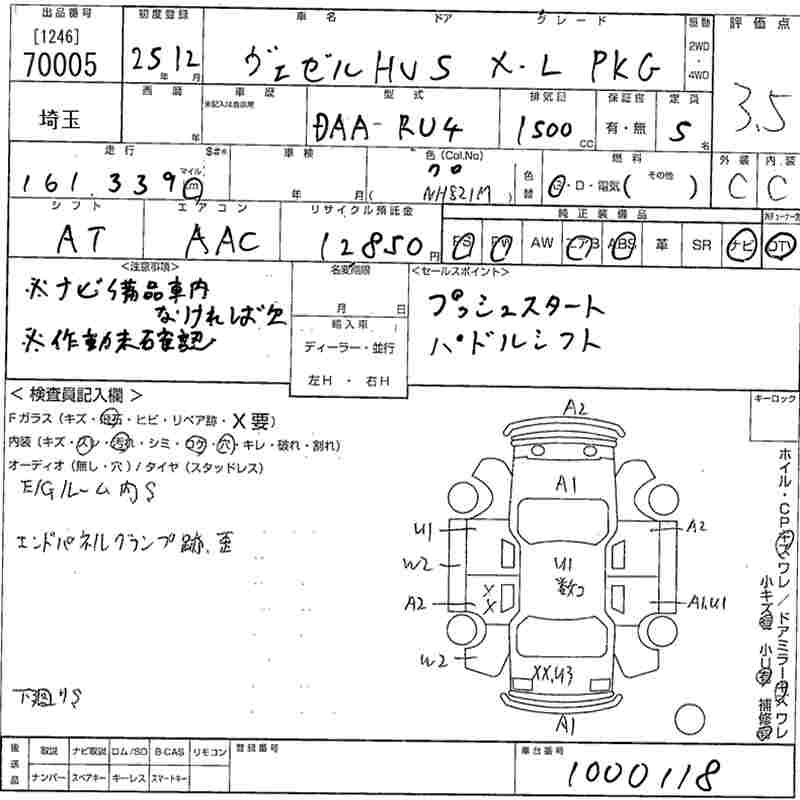 出品番号 初度登録 車名 ドア グレード 駆動 評価点
[1246]
70005 25年 12月 ヴェゼルHVS X・L PKG 2WD・4WD 3.5
埼玉 西暦 年 車歴 ※記入は自家用 型式 DAA-RU4 排気量 1500cc 保証書 有・無 定員 5名
走行 マイル km 161.339 車検 年 月 色(Col.No) クロ (NH821M) 色替 燃料 G・D・電気( その他 ) 外装 C 内装 C
シフト AT エアコン AAC リサイクル預託金 12850円 純正装備品 PS PW AW エアB ABS 革 SR ナビ TV
<注意事項> 名変期限 <セールスポイント>
※ナビ備品車内
なければ欠
※作動未確認
月 日
輸入車
ディーラー・並行
左H・右H
プッシュスタート
パドルシフト
<検査員記入欄> キーロック
Fガラス(キズ・飛石・ヒビ・リペア跡・X要)
内装(キズ・スレ・汚れ・シミ・コゲ・穴・キレ・破れ・割れ)
オーディオ(無し・穴)/タイヤ(スタッドレス)
E/Gルーム内S
エンドパネルクランプ跡、歪
下廻りS
A2
A1
U1 A2
W2 U1
数コ
A2 XX A1,U1
W2
XX,U3
A1
ホイル・CPキズワレ/ドアミラーキズワレ
小キズ有 小U有 補修有
後送品 取説 ナビ取説 ロム/SD B-CAS リモコン 登録番号 車台番号
ナンバー スペアキー キーレス スマートキー 1000118